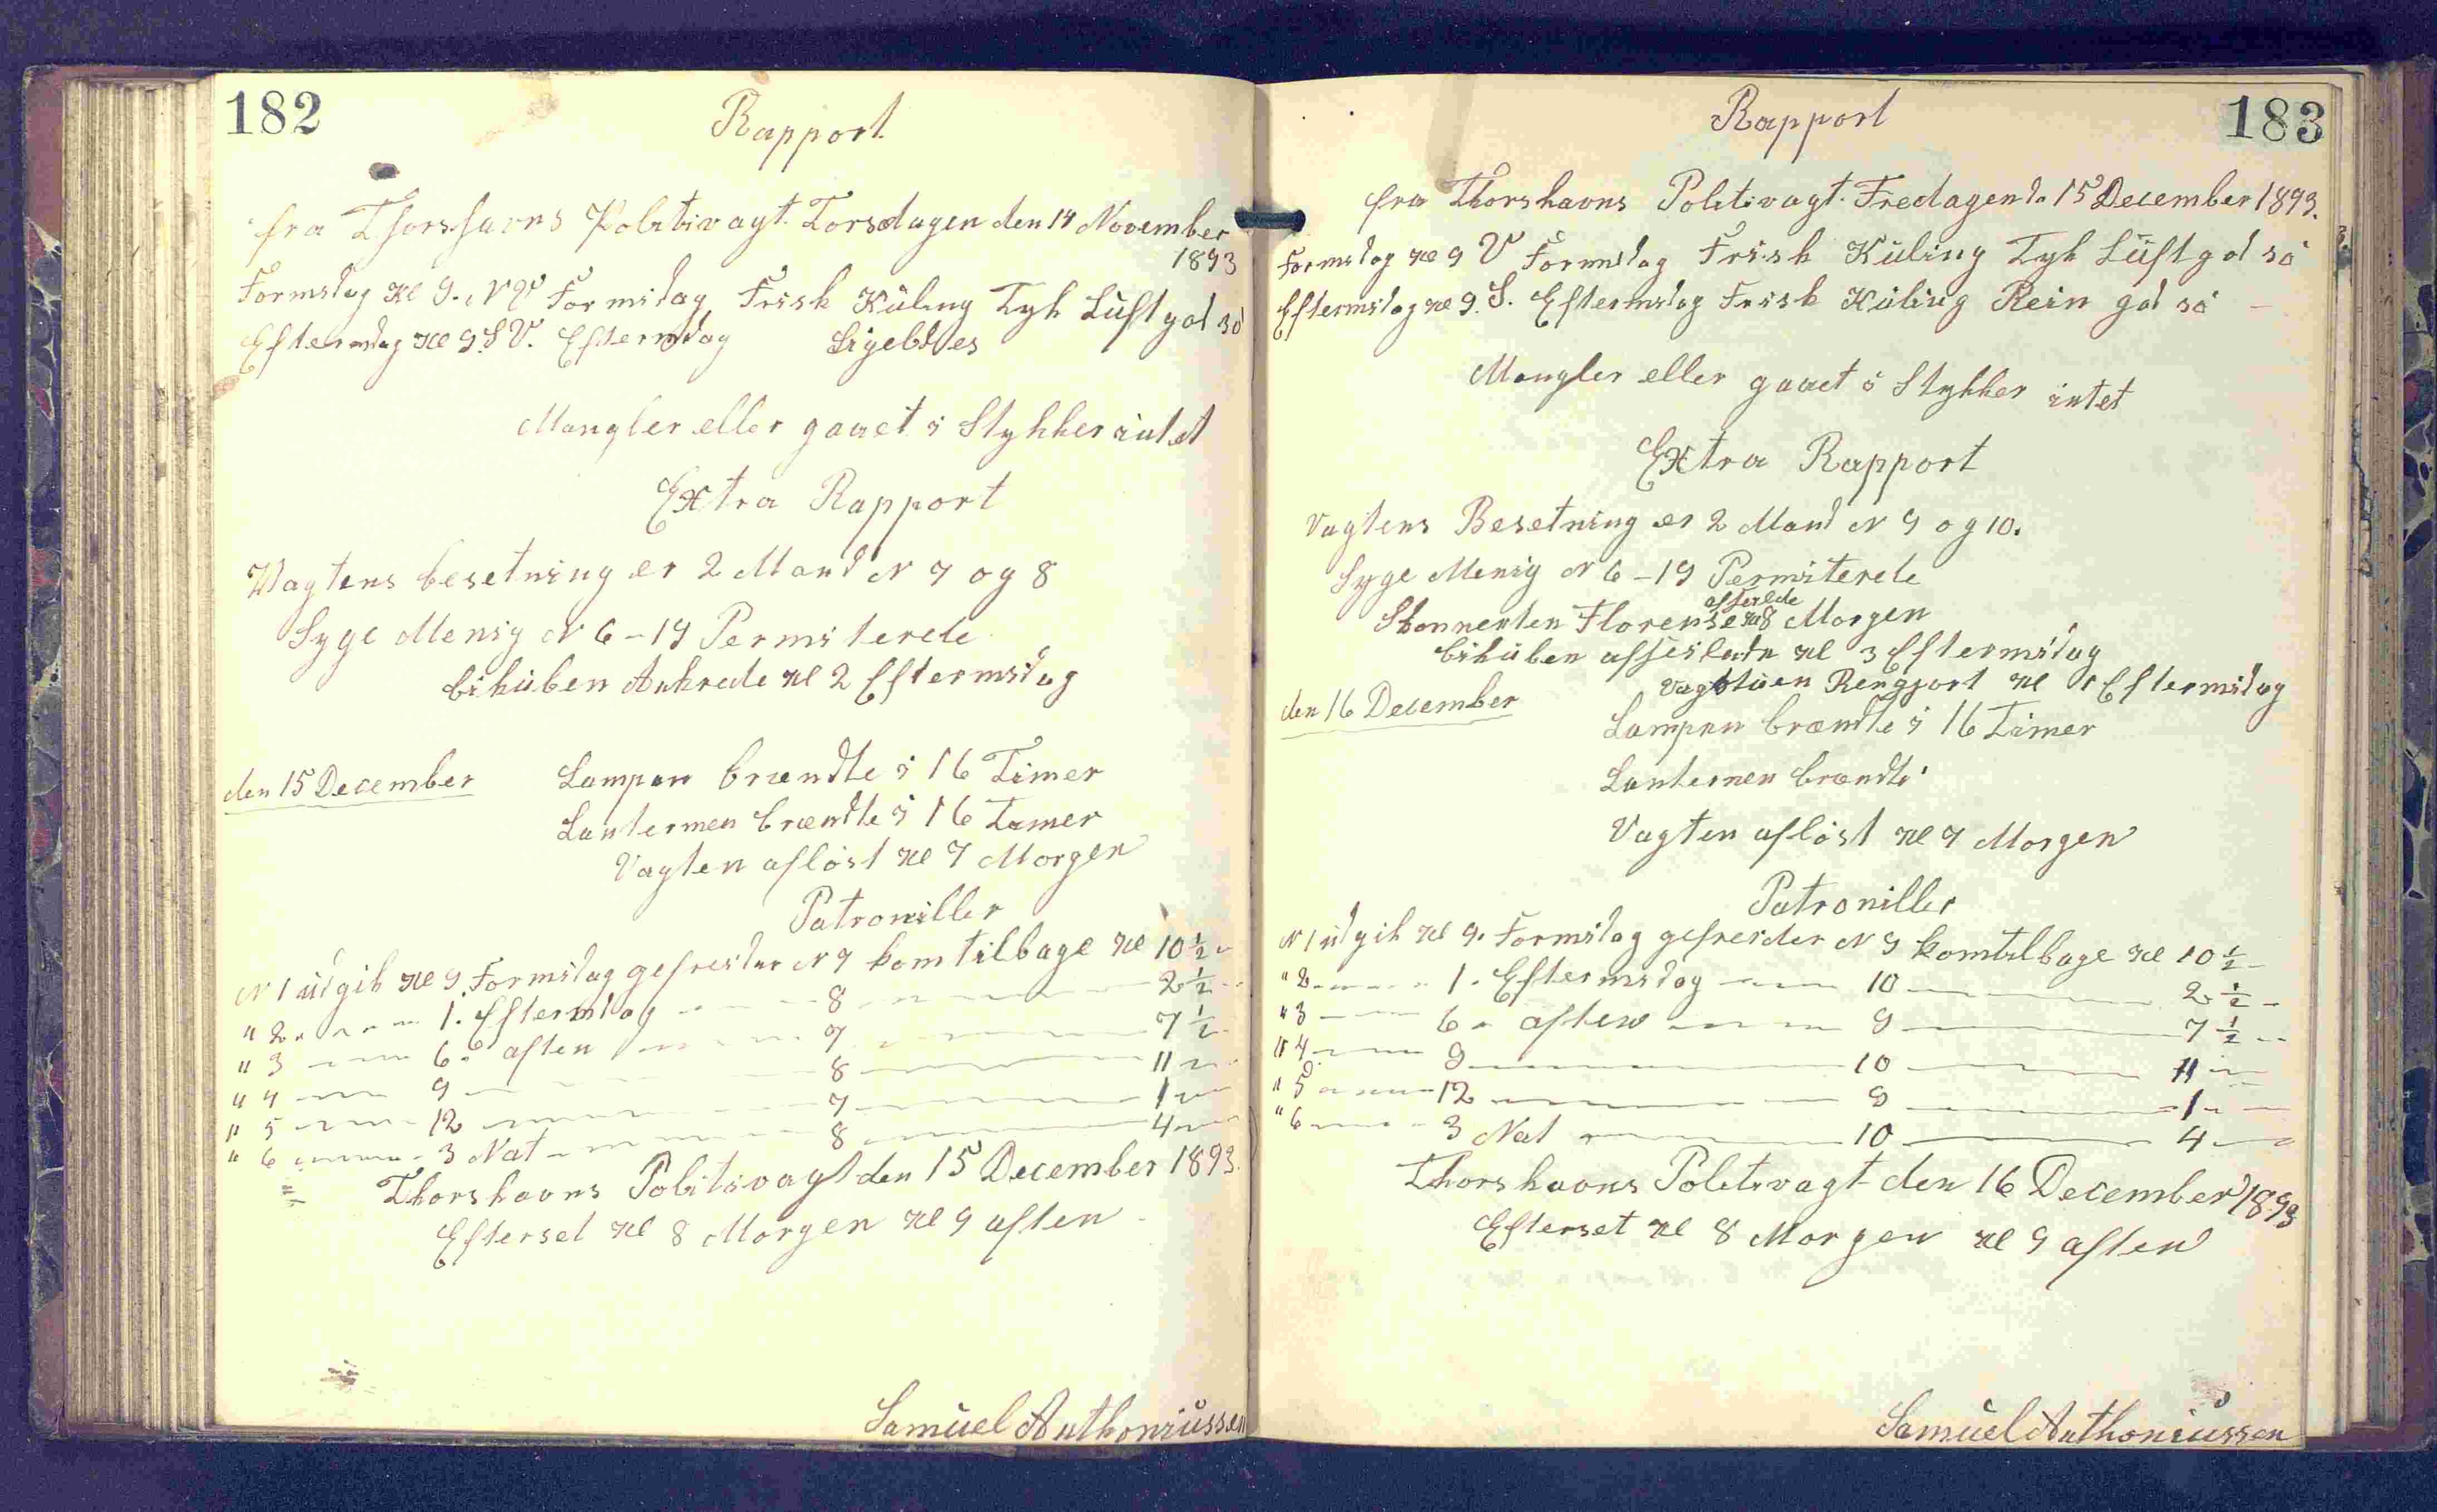 182
Rapport
fra Thorshavns Politivagt. Torsdagen den 14 November
1893
Formidag Kl 9. N V Formidag Frisk Kúling Tyk Lúft god sö
Eftermidag Kl 9. S V. Eftermidag Ligeledes
Mangler eller gaaet i Stykker intet
Extra Rapport
Vagtens besetning er 2 Mand N 7 og 8
Syge Menig N 6 - 19 Permiterede
bikúben Ankrede Kl 2 Eftermidag
den 15 December Lampen brændte i 16 Timer
Lanternen brændte i 16 Timer
Vagten aflöst Kl 7 Morgen
Patroniller
N 1 údgik Kl 9. Formidag gefreider N 7 kom tilbage Kl 10 ½
" 2 1. Eftermidag 8 2 ½
" 3 6. aften 7 7 ½
" 4 9 8 11
" 5 12 7 1
" 6 3 Nat 8 4
Thorshavns Politivagt den 15 December 1893.
Efterset Kl 8 Morgen Kl 9 aften
Samúel Anthoniússen
183
Rapport
fra Thorshavns Politivagt. Fredagen d. 15 December 1893.
Formidag Kl 9 V Formidag Frisk Kúling Tyk Lúft god sö
Eftermidag Kl 9. S. Eftermidag Frisk Kúling Rein god sö
Mangler eller gaaet i Stykker intet
Extra Rapport
Vagtens Besetning er 2 Mand N 9 og 10.
Syge Menig N 6 - 19 Permiterede
afseilede
Skonnerten Florense Kl 8 Morgen
bikúben afseilede Kl 3 Eftermidag
Vagstúen Rengjort Kl 1 Eftermidag
den 16 December
Lampen brændte i 16 Timer
Lanternen brændte
Vagten aflöst Kl 7 Morgen
Patroniller
N 1 údgik Kl 9. Formidag gefreider N 9 kom tilbage Kl 10 ½
" 2 1. Eftermidag 10 2 ½
" 3 6 aften 9 7 ½
" 4 9 10 11
" 5 12 9 1
" 6 3 Nat 10 4
Thorshavns Politivagt den 16 December 1893
Efterset Kl 8 Morgen Kl 9 aften
Samúel Anthoniússen